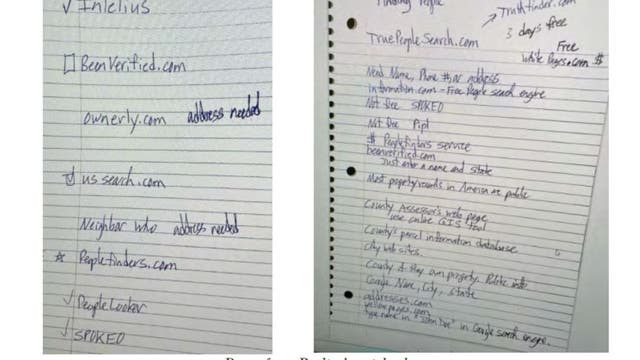 ✓ Intelius
☐ BeenVerified.com
ownerly.com address needed
☑ ussearch.com
Neighbor who address needed
☆ Peoplefinders.com
✓ PeopleLooker
✓ SPOKEO
Finding People
Truthfinder.com
3 days free
TruePeopleSearch.com
Free
White Pages.com $
Need Name, Phone #, or address
information.com - Free People search engine
Not free SPOKEO
Not free Pipl
$ Peoplefinders service
beenverified.com
Just enter a name and state
Most property records in America are public
County Assessor's web page
use online GIS tool
County's parcel information database
City web sites.
County if they own property. Public info
Google Name, City, State
addresses.com
yellowpages.com
type name in "John Doe" in Google search engine.